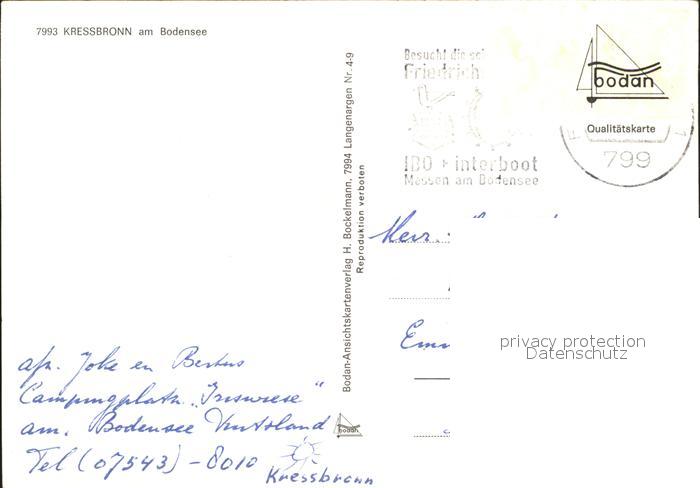 7993 KRESSBRONN am Bodensee
Besucht die
Friedrich
IBO + interboot
Messen am Bodensee
bodan
Qualitätskarte
799
Bodan-Ansichtskartenverlag H. Bockelmann, 7994 Langenargen Nr. 4-9
Reproduktion verboten
Herr.
privacy protection
Datenschutz
afz. Joke en Bertus
Campingplatz. „Iriswiese"
am. Bodensee Duitsland
Tel (07543) - 8010
Kressbronn
bodan